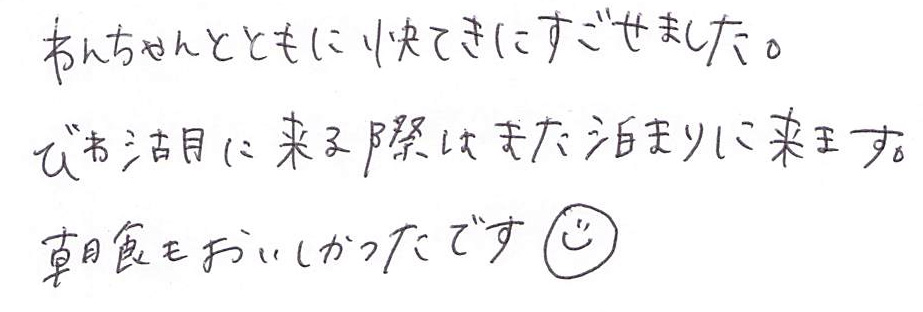 わんちゃんとともに快てきにすごせました。
びわ湖に来る際はまた泊まりに来ます。
朝食もおいしかったです